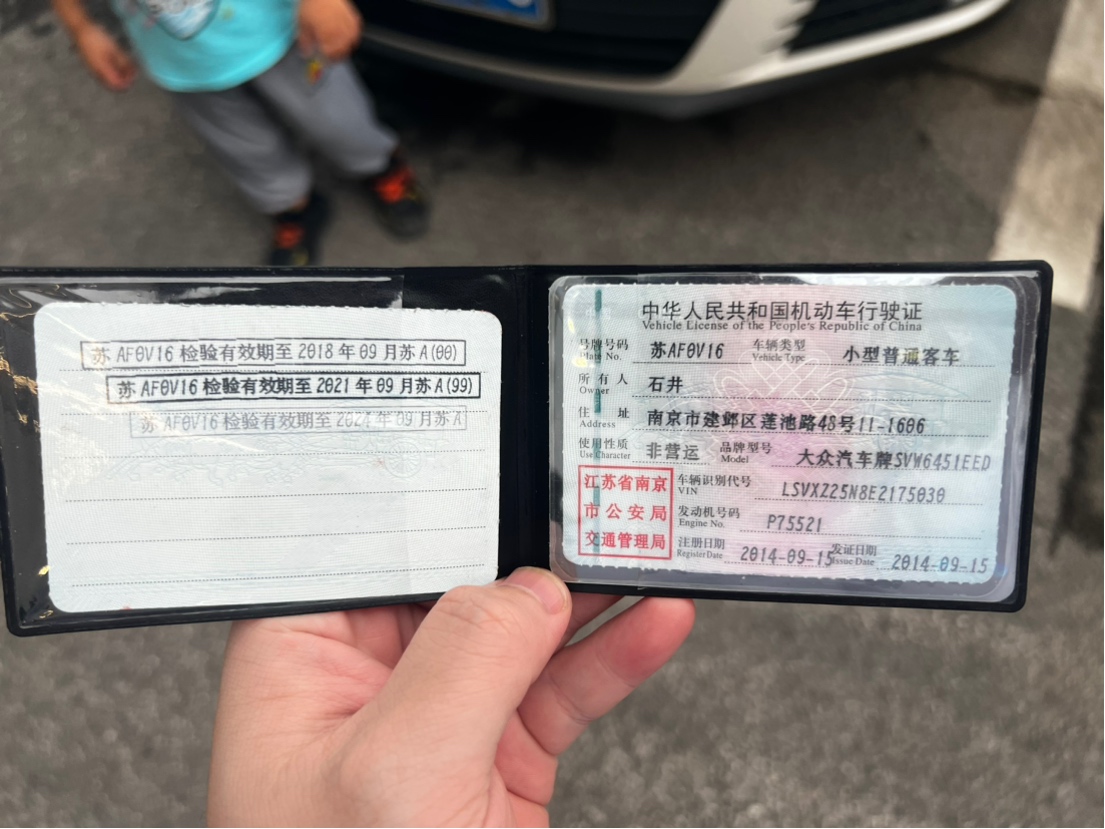 苏 AF0V16 检验有效期至 2018 年 09 月苏 A(00)
苏 AF0V16 检验有效期至 2021 年 09 月苏 A(99)
苏 AF0V16 检验有效期至 2024 年 09 月苏 A
中华人民共和国机动车行驶证
Vehicle License of the People's Republic of China
号牌号码 苏AF0V16 车辆类型 小型普通客车
Plate No. Vehicle Type
所有人 石井
Owner
住址 南京市建邺区莲池路48号11-1606
Address
使用性质 非营运 品牌型号 大众汽车牌SVW6451EED
Use Character Model
江苏省南京
市公安局
交通管理局
车辆识别代号 LSVXZ25N8E2175030
VIN
发动机号码 P75521
Engine No.
注册日期 2014-09-15 发证日期 2014-09-15
Register Date Issue Date